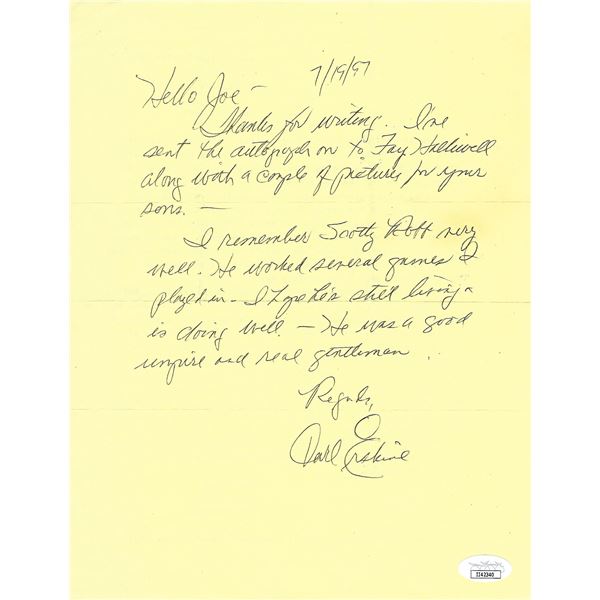 7/19/97
Hello Joe –
Thanks for writing. I've
sent the autograph on to Fay Halliwell
along with a couple of pictures for your
sons. –
I remember Scotty Robb very
well. He worked several games I
played in – I hope he's still living &
is doing well. – He was a good
umpire and real gentleman.
Regards,
Carl Erskine
II42340